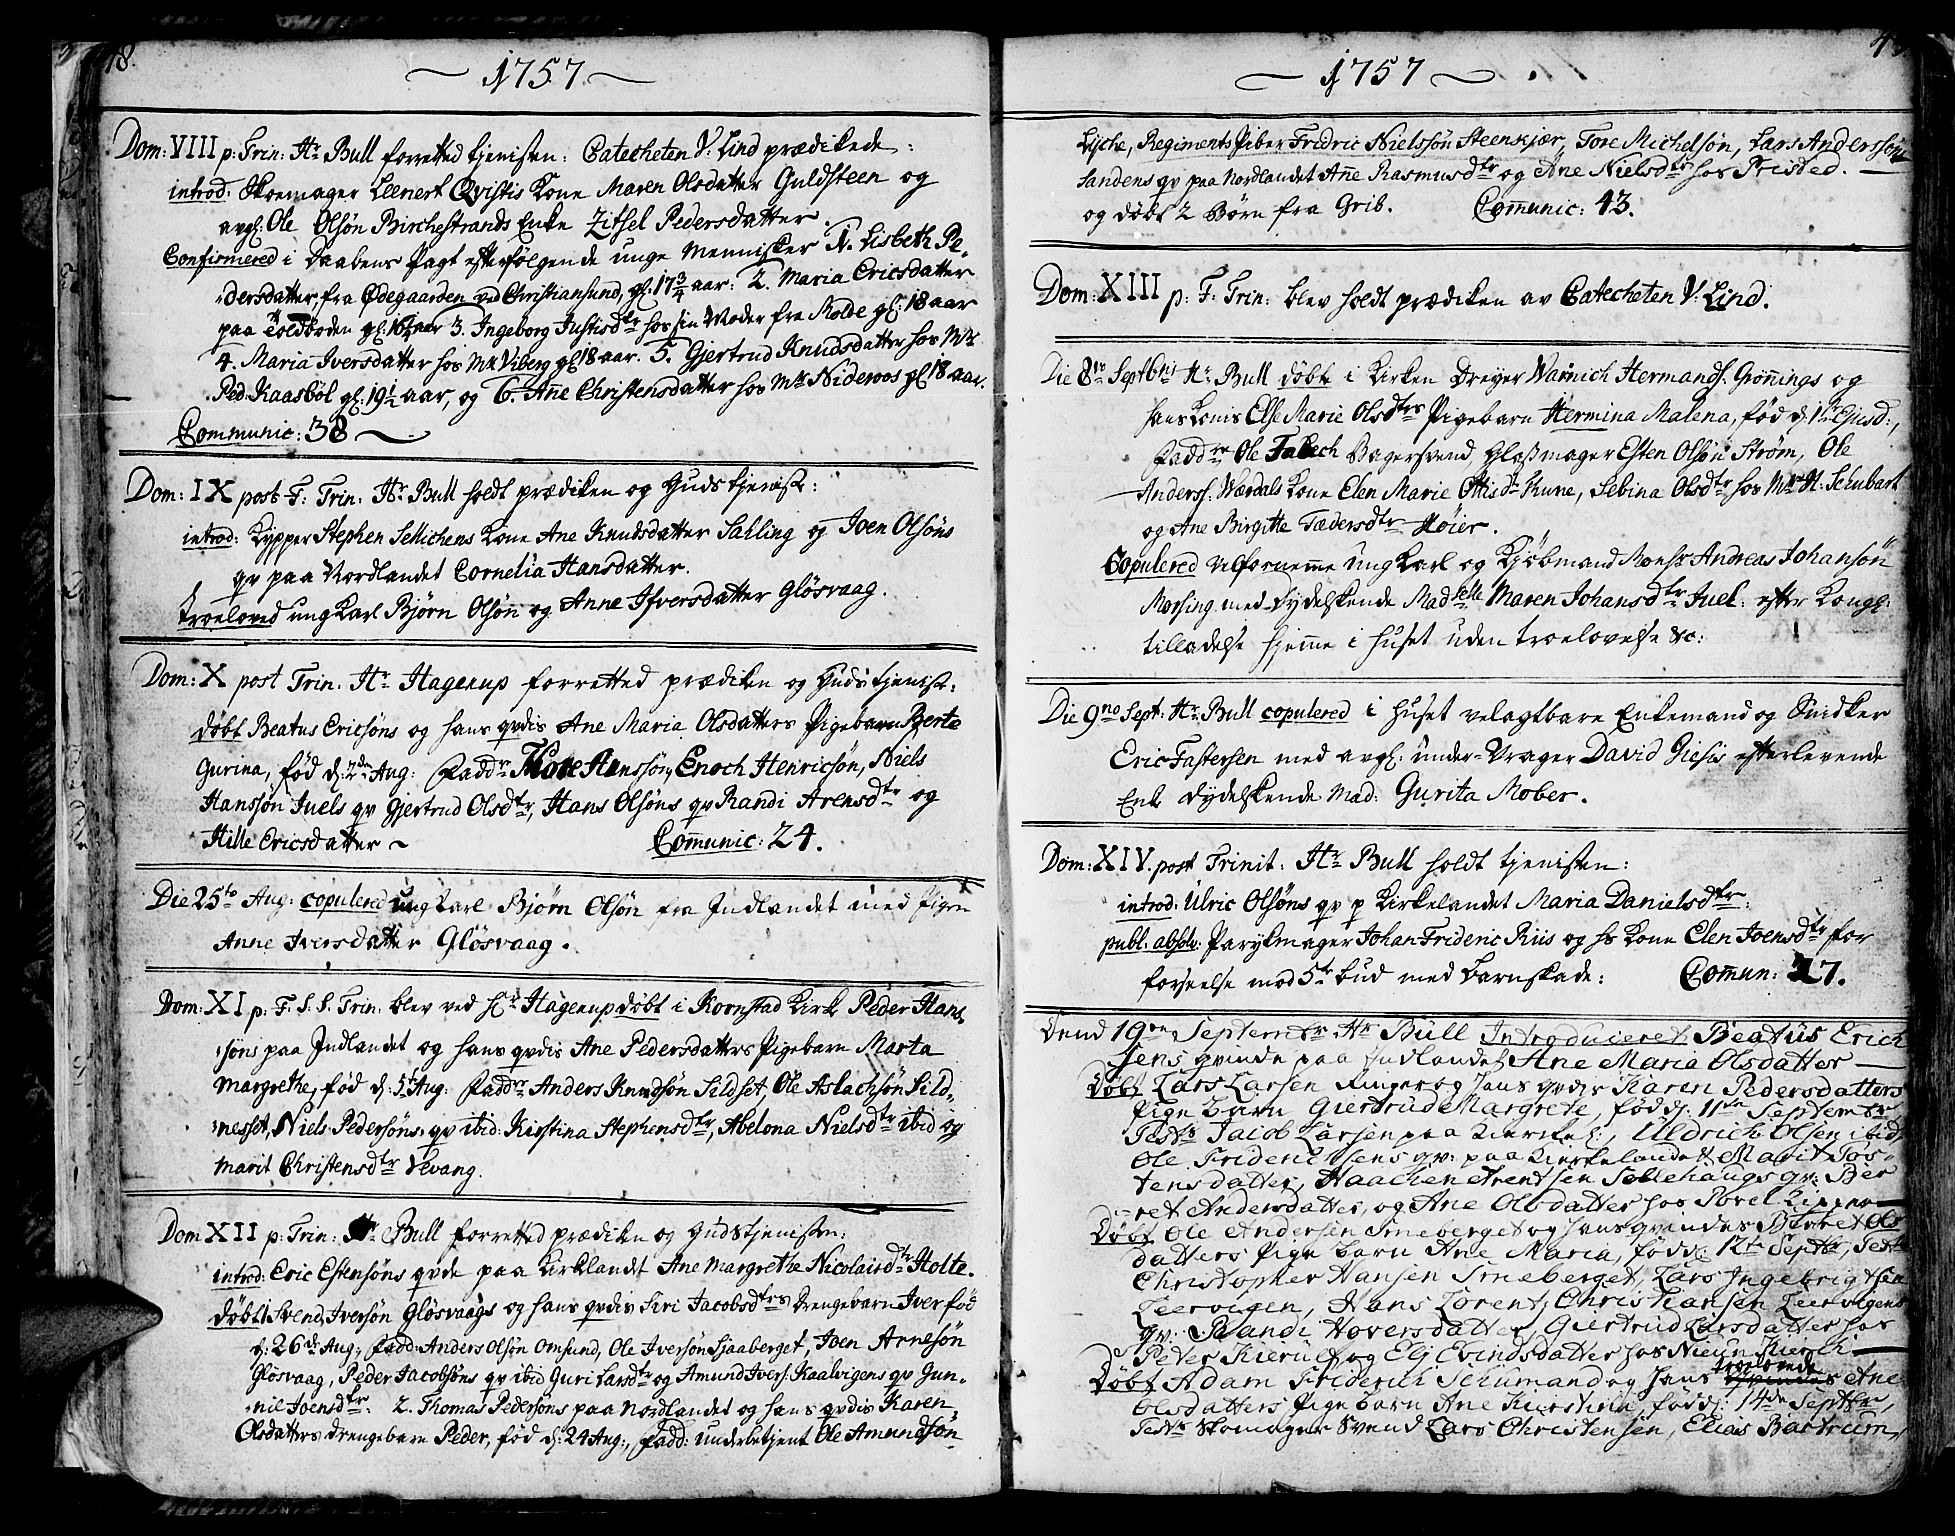 48.
1757
Dom: VIII p: Trin: Hr Bull forretted tjenisten: Catecheten V: Lind prædikede:
introd: Skoemager Leenert Qvistis Kone Maren Olsdatter Guldsteen og
avgl: Ole Olsøn Birchestrands Enke Zitsel Pedersdatter.
Confirmered i Daabens Pagt efterfølgende unge Mennisker 1. Lisbeth Pe-
dersdatter, fra Ødegaarden ved Christiansund, gl: 17¾ aar: 2. Maria Ericsdatter
paa Toldboden gl: 16½ aar 3. Ingeborg Justisdtr hos sin Moder fra Molde gl: 18 aar
4. Maria Iversdatter hos Mr Viberg gl 18 aar. 5. Gjertrud Knudsdatter hos Mr
Ped. Kaasbøl gl: 19½ aar, og 6. Ane Christensdatter hos Mr Nideroos gl 18 aar.
Communic: 38
Dom: IX post F: Trin: Hr Bull holdt prædiken og Gudstjeniste:
introd: Kypper Stephen Sellichens Kone Ane Knudsdatter Sahling og Joen Olsøns
qv paa Nordlandet Cornelia Hansdatter.
troeloved ung Karl Bjørn Olsøn og Anne Ifversdatter Gløsvaag.
Dom: X post Trin. Hr Hagerup forretted prædiken og Gudstjeniste:
døbt Beatus Ericsøns og hans qvdis Ane Maria Olsdatters Pigebarn Berte
Gurina, fød d: 2de Aug: Faddr Thore Hanssøn, Enoch Henricsøn, Niels
Hanssøn Juels qv Gjertrud Olsdtr, Hans Olsøns qv Randi Arensdtr og
Hille Ericsdatter ~ Communic: 24.
Die 25to Aug: copulered ung Karl Bjørn Olsøn fra Indlandet med Pigen
Anne Iversdatter Gløsvaag.
Dom: XI p: F: S: S: Trin: blev ved Hr Hagerup døbt i Kornstad Kirke Peder Hans
søns paa Indlandet og hans qvdis Ane Pedersdatters Pigebarn Marta
Margrethe, fød d: 5t Aug: Faddr Anders Knudsøn Sildset, Ole Aslachsøn Sild-
nesset, Niels Pedersøns qv ibid: Kirstina Stephensdtr, Abelona Nielsdtr ibid og
Marit Christensdtr Vevang.
Dom XII p: Trin: Hr Bull forretted prædiken og Gudstjenisten:
introd: Eric Estensøns qvde paa Kirklandet Ane Margrethe Nicolaisdtr Holte.
døbt 1 Svend Iversøn Gløsvaags og hans qvdis Siri Jacobsdtrs drengebarn Iver fød
d: 26de Aug: Fadd: Anders Olsøn Omsund, Ole Iversøn Sjaaberget, Joen Arnesøn
Gløsvaag, Peder Jacobsøns qv ibid Guri Larsdtr og Amund Ivers: Kaalvigens qv Gun-
nil Joensdtr. 2. Thomas Pedersøns paa Nordlandet og hans qvdis Karen
Olsdatters drengebarn Peder, fød d: 24 Aug:, Fadd: underbetjent Ole Amundsøn
1757
Lyche, Regiments Piber Fredric Nielssøn Steenkjær, Tore Michelsøn, Lars Anderssøn
Sandens qv paa Nordlandet Ane Rasmusdtr og Ane Nielsdtr hos Fristed.
og døbt 2 Børn fra Grib. Communic: 43.
Dom: XIII p: F: Trin: blev holdt prædiken av Catecheten V: Lind.
Die 8vo Septbris Hr Bull døbt i Kirken Dreyer Warnich Hermands: Grønnings og
hans Konis Else Marie Olsdtrs Pigebarn Hermina Malena, fød d: 1ste Ejusd:,
Faddre Ole Fabech Bagersvend, Glasmager Esten Olsøn Strøm, Ole
Anderss: Wærdals Kone Elen Marie Ottisdr Rune, Sebina Olsdtr hos Mr H: Schubart
og Ane Birgitte Tædersdtr Høier.
Copulered velfornemme ung Karl og Kjøbmand Monsr Andreas Johansøn
Morsing med Dydelskende Madselle Maren Johansdtr Juel: efter Kongl:
tilladelse hjemme i huset uden troelovelse &c:
Die 9no Sept: Hr Bull copulered i huset velagtbare Enkemand og Snidker
Eric Fastersen med avgl: under-Vrager David Giesis efterlevende
Enke Dydelskende Mad: Gurita Mober.
Dom: XIV. post Trinit: Hr Bull holdt tjenisten:
introd: Ulric Olsøns qv p Kirkelandet Maria Danielsdtr:
publ: absolv: Parykmager Johan Frideric Riis og hs Kone Elen Joensdtr for
forseelse mod 5te bud med Barnskade: Commun: 27.
Dend 19de Septembr Hr Bull Introduceret Beatus Erich
sens qvinde paa Indlandet Ane Maria Olsdatter
Døbt Lars Larsen Ringer og hans qvdis Karen Pedersdatters
Pige barn Giertrud Margrete, fød d: 11te Septembr
Testr Jacob Larsen paa Kierkel:, Uldrich Olsen ibid
Ole Friderichsens qv: paa Kierkelandet Marit Tos-
tensdatter, Haachen Arentsen Sollehaugs qv: Ber
ret Andersdatter, og Ane Olsdatter hos Povel Kipper
Døbt Ole Andersen Smeberget og hans qvindes Berret Ols
datters Pige barn Ane Maria, fød d: 12te Septbr, Test
Christopher Hansen Smeberget, Lars Ingebrigtsen
Leervigen, Hans Lorents Christiansen Leervigens
qv: Randi Hoversdatter, Giertrud Larsdatter hos
Peter Kierulf og Elj Evindsdatter hos
Døbt Adam Friderich Schumand og hans troelovede Ane
Olsdatters Pige barn Ane Kierstina, fød d: 14de Septbr,
Testr Skomager Svend Lars Christensen, Elias Bartrum,